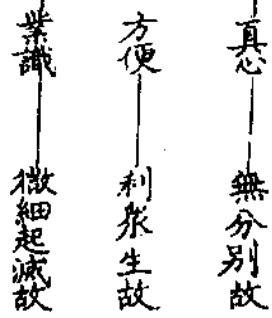 真心——無分別故
方便——利眾生故
業識——微細起滅故